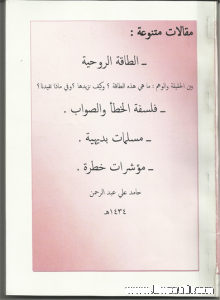 مقالات متنوعة :
ــ الطاقة الروحية
بين الحقيقة والوهم : ما هي هذه الطاقة ؟ وكيف نزيدها ؟ وفي ماذا تفيدنا ؟
ــ فلسفة الخطأ والصواب .
ــ مسلمات بديهية .
ــ مؤشرات خطرة .
حامد علي عبد الرحمن
١٤٣٤هـ